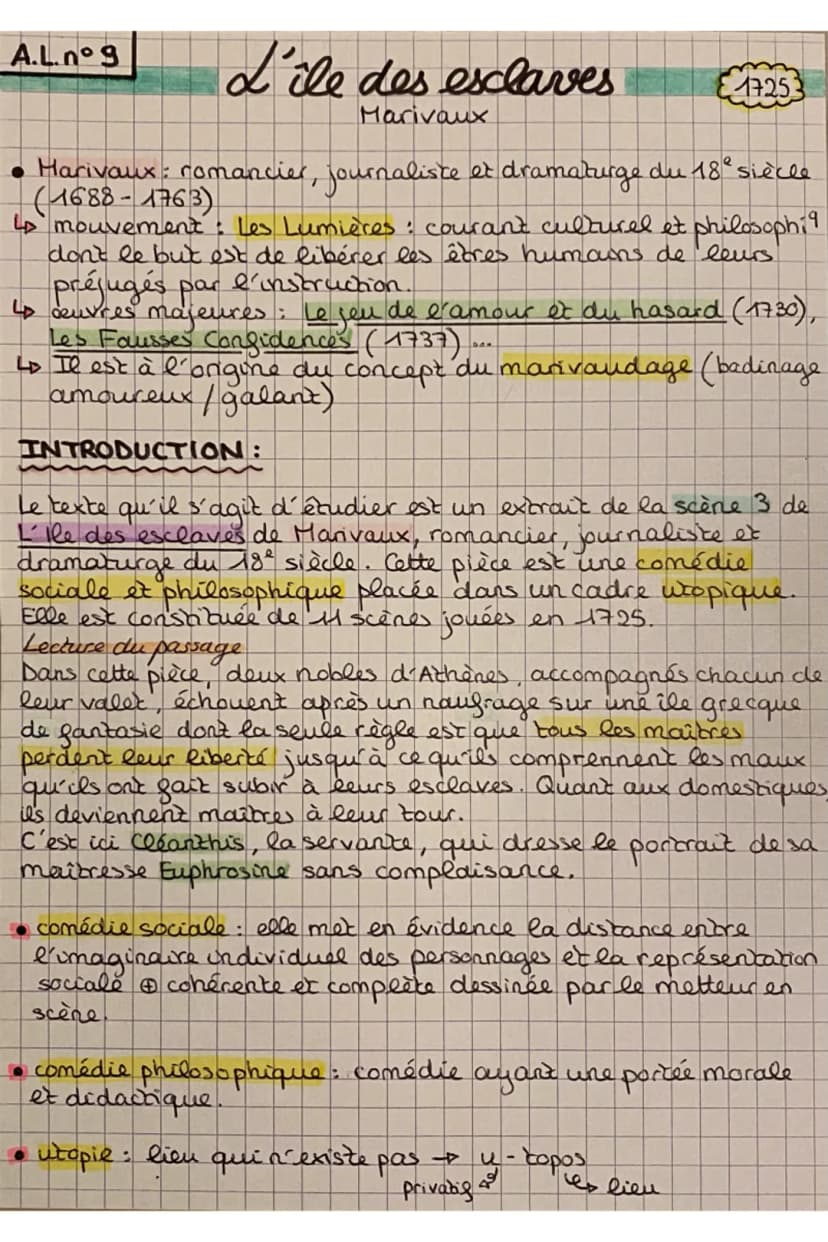 A.L.n°9
L'île des esclaves
1725
Marivaux
• Marivaux : romancier, journaliste et dramaturge du 18e siècle
(1688-1763)
↳ mouvement : Les Lumières : courant culturel et philosophiq
dont le but est de libérer les êtres humains de leurs
préjugés par l'instruction.
↳ œuvres majeures : Le jeu de l'amour et du hasard (1730),
Les Fausses Confidences (1737) ...
↳ Il est à l'origine du concept du marivaudage (badinage
amoureux / galant)
INTRODUCTION :
Le texte qu'il s'agit d'étudier est un extrait de la scène 3 de
L'île des esclaves de Marivaux, romancier, journaliste et
dramaturge du 18e siècle. Cette pièce est une comédie
sociale et philosophique placée dans un cadre utopique.
Elle est constituée de 11 scènes jouées en 1725.
Lecture du passage
Dans cette pièce, deux nobles d'Athènes, accompagnés chacun de
leur valet, échouent après un naufrage sur une île grecque
de fantasie dont la seule règle est que tous les maîtres
perdent leur liberté jusqu'à ce qu'ils comprennent les maux
qu'ils ont fait subir à leurs esclaves. Quant aux domestiques,
ils deviennent maîtres à leur tour.
C'est ici Cléanthis, la servante, qui dresse le portrait de sa
maîtresse Euphrosine sans complaisance.
• comédie sociale : elle met en évidence la distance entre
l'imaginaire individuel des personnages et la représentation
sociale ⊕ cohérente et complète dessinée par le metteur en
scène.
• comédie philosophique : comédie ayant une portée morale
et didactique.
• utopie : lieu qui n'existe pas → u - topos
privatif ↲ ↳ lieu